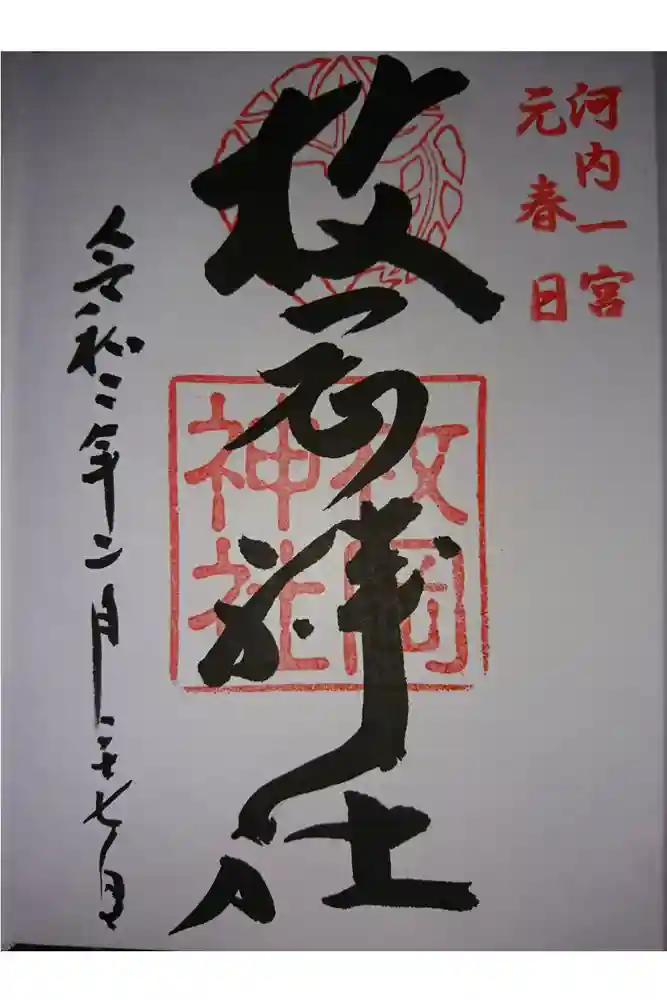 河内一宮
元春日
枚岡神社
枚岡神社
令和二年二月二十七日